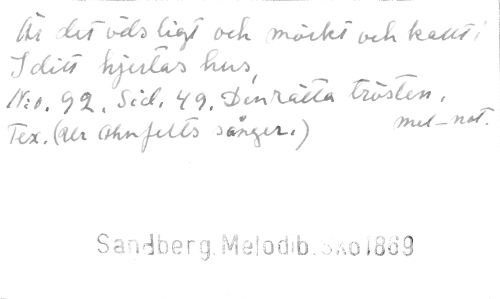 Är det ödsligt och mörkt och kallt i
I ditt hjertas hus,
N:o. 92. Sid. 49. Den rätta trösten.
Tex. (Ur Ahnfelts sånger.) mel-not.
Sandberg. Melodib. Sko 1869